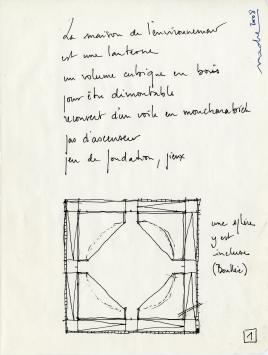 La maison de l'environnement
est une lanterne
un volume cubique en bois
pour être démontable
recouvert d'un voile en moucharabieh
pas d'ascenseur
peu de fondation, pieux
une sphère
y est
incluse
(Boullée)
1